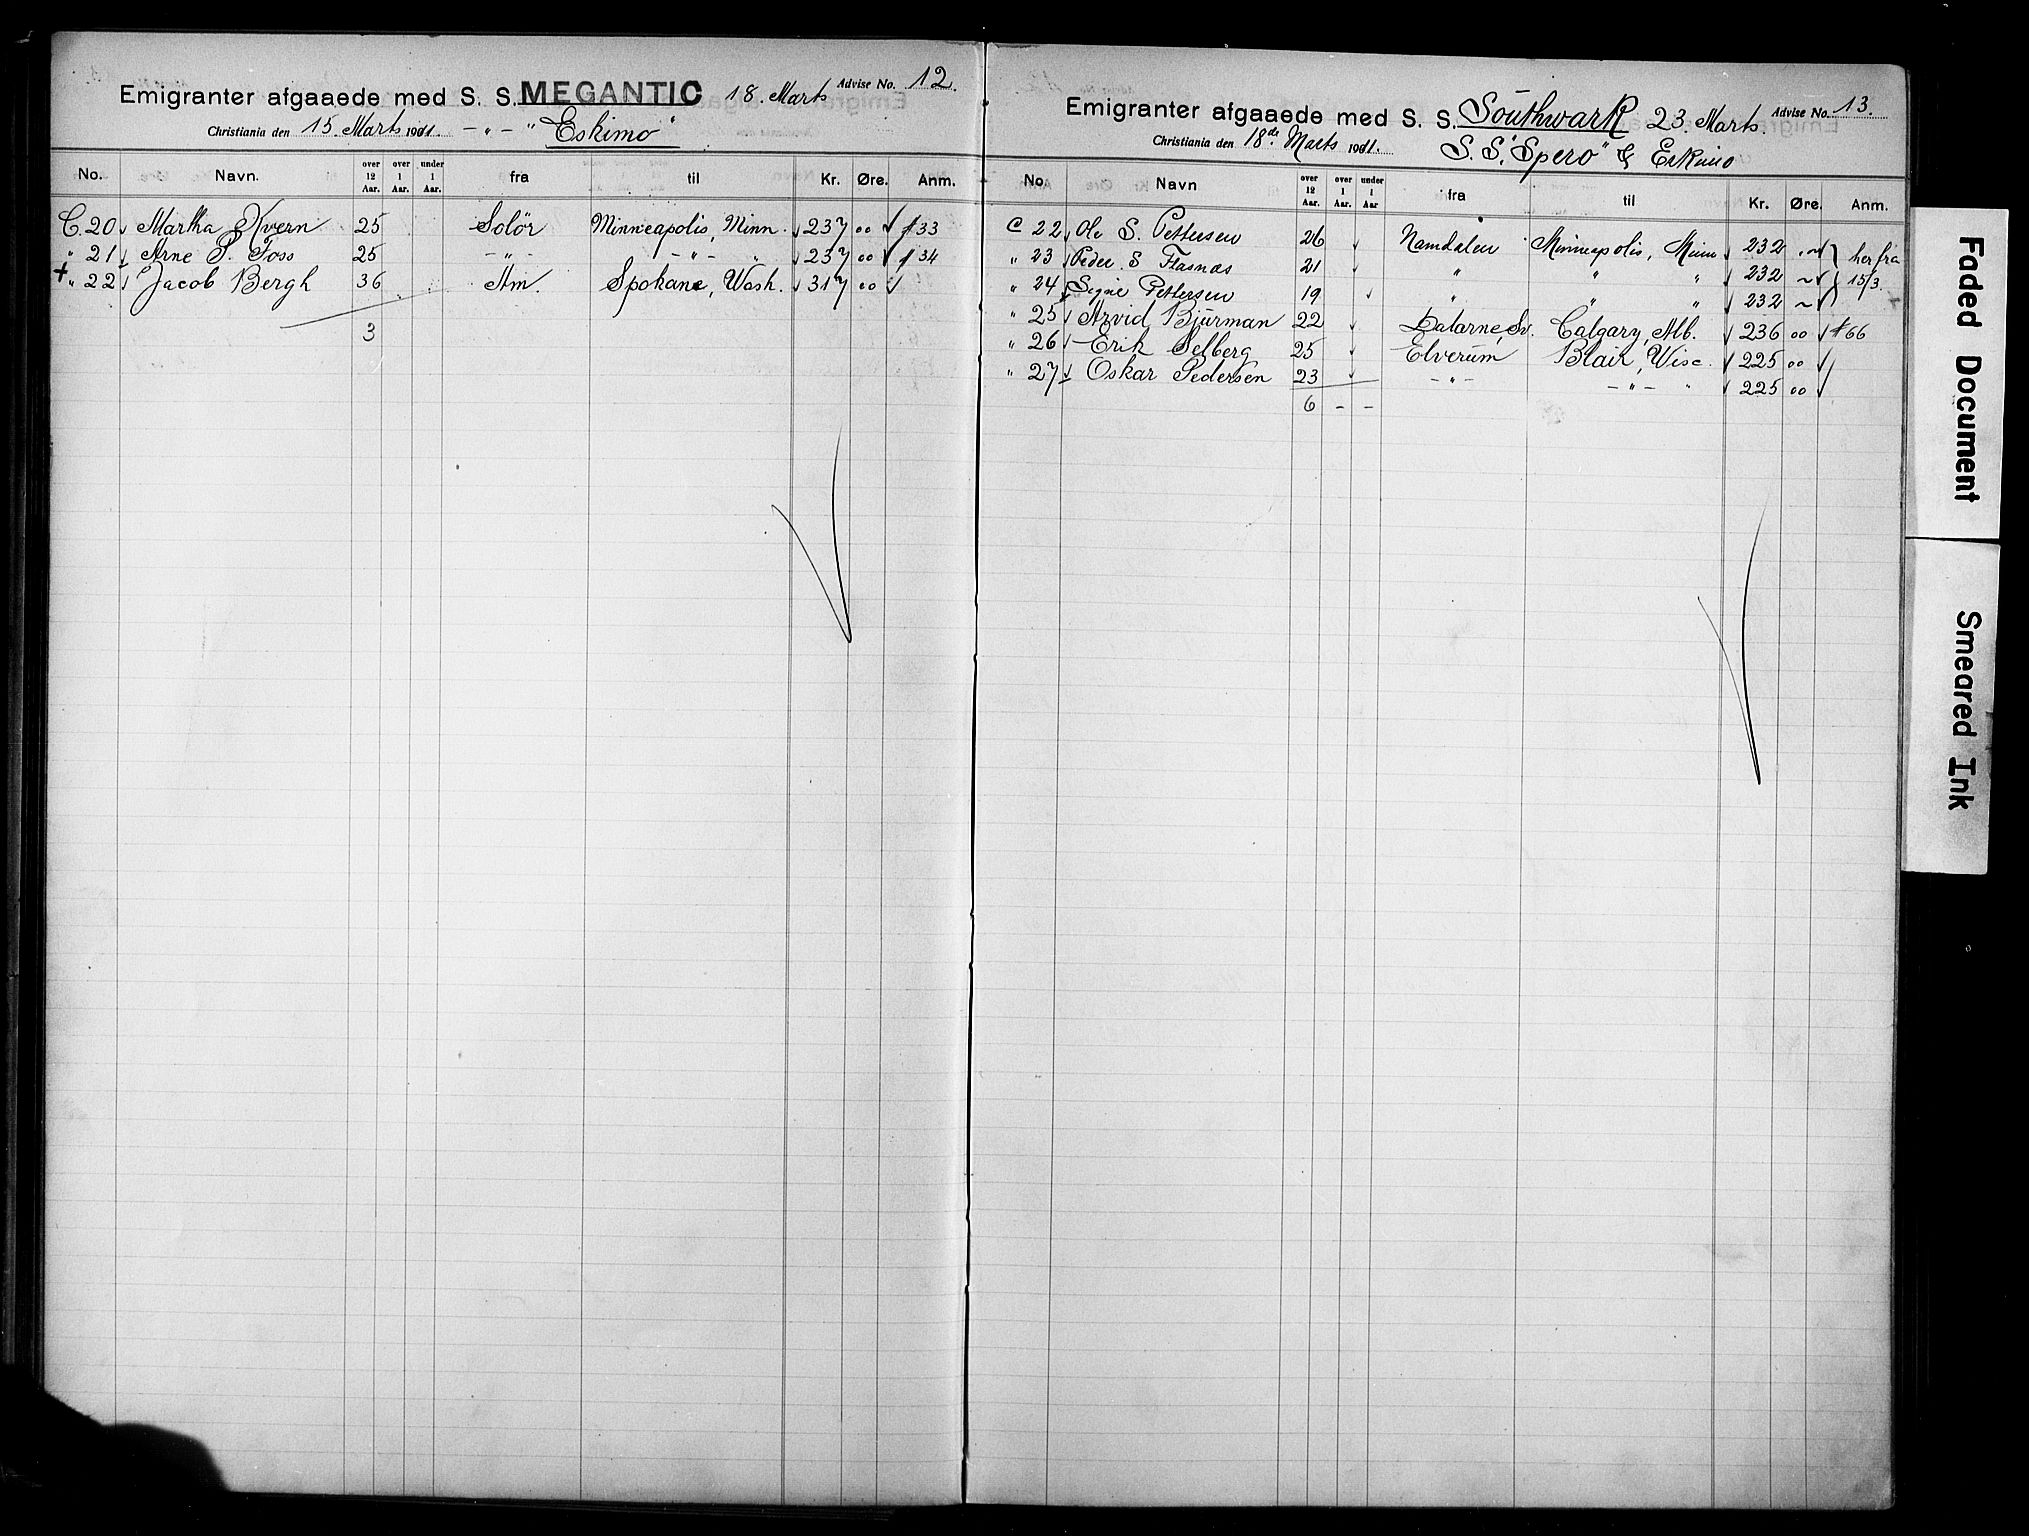 Emigranter afgaaede med S. S. MEGANTIC 18. Marts Advise No. 12.
Christiania den 15. Marts 1911. - " - "Eskimo"
No. Navn. over 12 Aar. over 1 Aar. under 1 Aar. fra til Kr. Øre. Anm.
C. 20 Martha Kvern 25 Solör Minneapolis, Minn. 237 00 33
" 21 Arne P. Foss 25 - " - - " - " 237 00 34
+ " 22 Jacob Bergh 36 Am. Spokane, Wash. 317 00
3
Emigranter afgaaede med S. S. Southwark 23. Marts. Advise No. 13.
Christiania den 18de Marts 1911. S. S. "Spero" & Eskimo
No. Navn over 12 Aar. over 1 Aar. under 1 Aar fra til Kr. Øre. Anm.
C 22 Ole S. Pettersen 26 Namdalen Minneapolis, Minn 232 her fra
" 23 Peder S. Flasnæs 21 " " " 232 15/3.
" 24 Signe Pettersen 19 " " " 232
" 25 Arvid Bjurman 22 Dalarne, Sv. Calgary, Alb. 236 00 66
" 26 Erik Selberg 25 Elverum Blair, Wisc. 225 00
" 27 Oskar Pedersen 23 - " - - " - " 225 00
6 - -
Faded Document
Smeared Ink